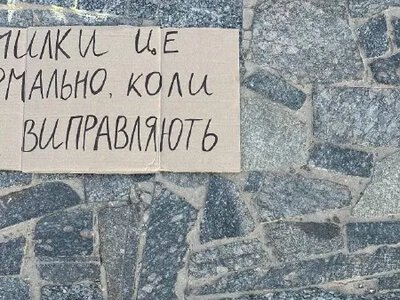 МИЛКИ ЦЕ
РМАЛЬНО, КОЛИ
ВИПРАВЛЯЮТЬ